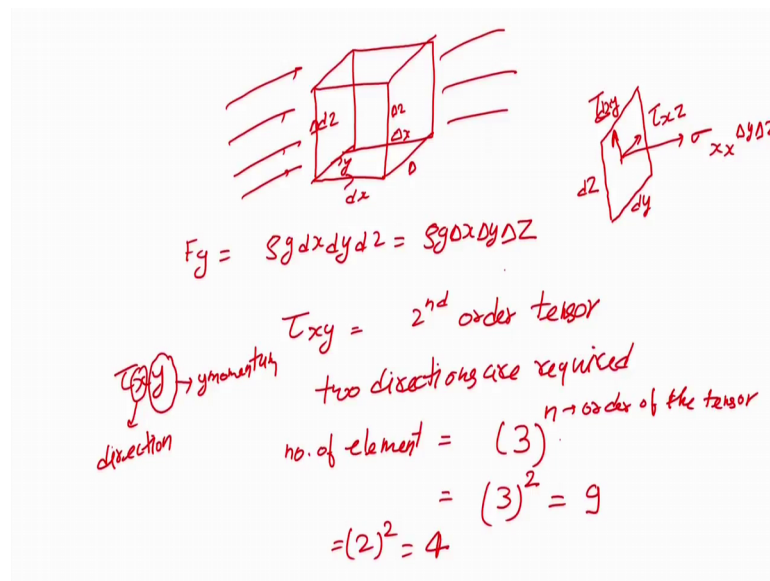 Δd2
Δ2
Δx
y
D
dx
τxy
τx2
σxx ΔyΔ2
d2
dy
Fg = ρg dx dy d2 = ρg Δx Δy ΔZ
τxy = 2nd order tensor
τxy → y momentum
direction
two directions are required
no. of element = (3)^n → order of the tensor
= (3)^2 = 9
= (2)^2 = 4